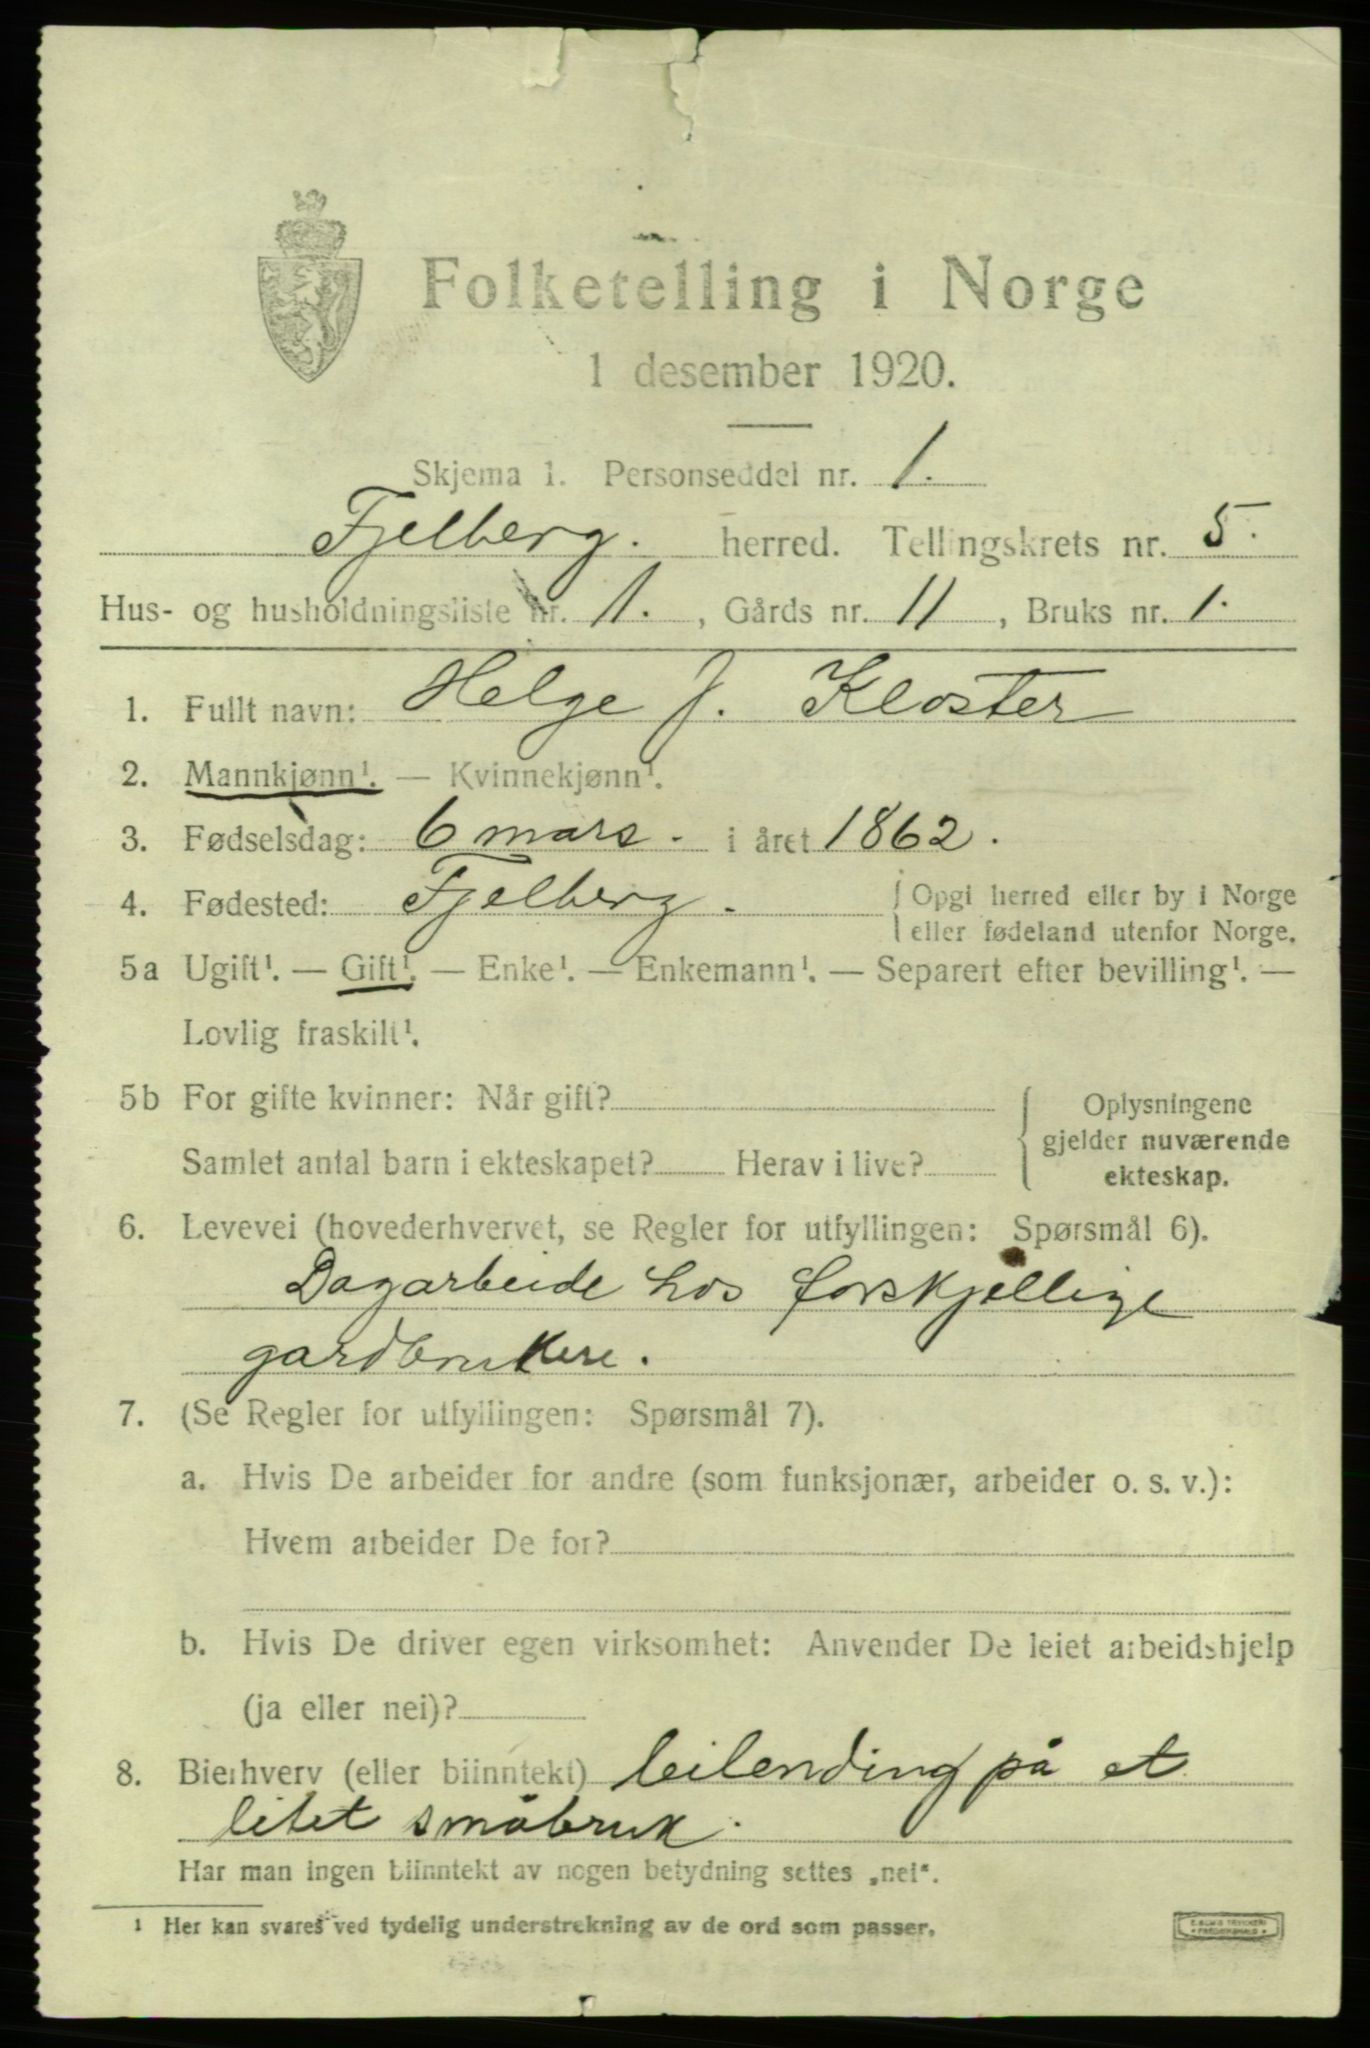 Folketelling i Norge
1 desember 1920.
Skjema 1. Personseddel nr. 1.
Fjelberg. herred. Tellingskrets nr. 5.
Hus- og husholdningsliste nr. 1. , Gårds nr. 11 , Bruks nr. 1.
1. Fullt navn: Helge J. Kloster
2. Mannkjønn¹. — Kvinnekjønn¹.
3. Fødselsdag: 6 mars. i året 1862.
4. Fødested: Fjelberg. { Opgi herred eller by i Norge
eller fødeland utenfor Norge.
5a Ugift¹. — Gift¹. — Enke¹. — Enkemann¹. — Separert efter bevilling¹. —
Lovlig fraskilt¹.
5b For gifte kvinner: Når gift?
Samlet antal barn i ekteskapet? Herav i live?
{ Oplysningene
gjelder nuværende
ekteskap.
6. Levevei (hovederhvervet, se Regler for utfyllingen: Spørsmål 6).
Dagarbeide hos forskjellige
gardbrukere.
7. (Se Regler for utfyllingen: Spørsmål 7).
a. Hvis De arbeider for andre (som funksjonær, arbeider o. s. v.):
Hvem arbeider De for?
b. Hvis De driver egen virksomhet: Anvender De leiet arbeidshjelp
(ja eller nei)?
8. Bierhverv (eller biinntekt) leilending på et
litet småbruk.
Har man ingen biinntekt av nogen betydning settes „nei“.
¹ Her kan svares ved tydelig understrekning av de ord som passer.